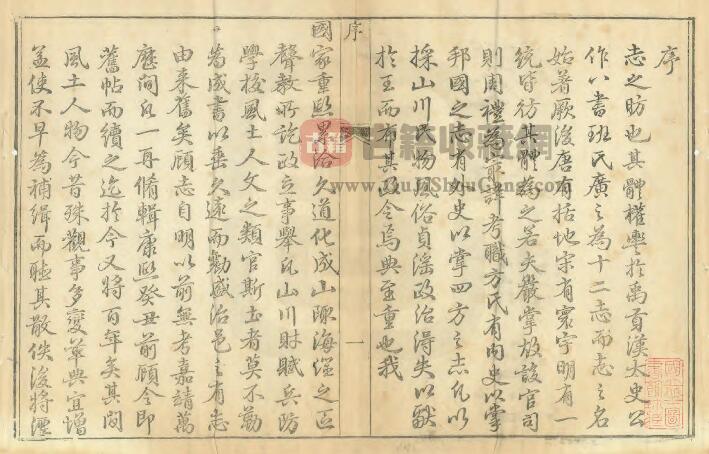 序
志之昉也其體權輿於禹貢漢太史公
作八書班氏廣之為十二志而志之名
始著厥後唐有括地宋有寰宇明有一
統皆彷其體為之若夫掌故設官司
則周禮為最詳考職方氏有内史以掌
邦國之志有外史以掌四方之志凡以
採山川民物風俗貞淫政治得失以獻
於王而布其政令焉典至重也我
序
一
國家重熙累洽久道化成山陬海澨之區
聲教所訖政立事舉凡山川財賦兵防
學校風土人文之類官斯土者莫不勒
為成書以垂久遠而勸盛治邑之有志
由来舊矣顧志自明以前無考嘉靖萬
歷間凡一再脩輯康熙癸丑前顧令即
舊帖而續之迄於今又將百年矣其間
風土人物今昔殊觀事多變革典宜增
益使不早為補緝而聽其散佚後將湮
古籍收藏网
www.GuJiShouCang.com